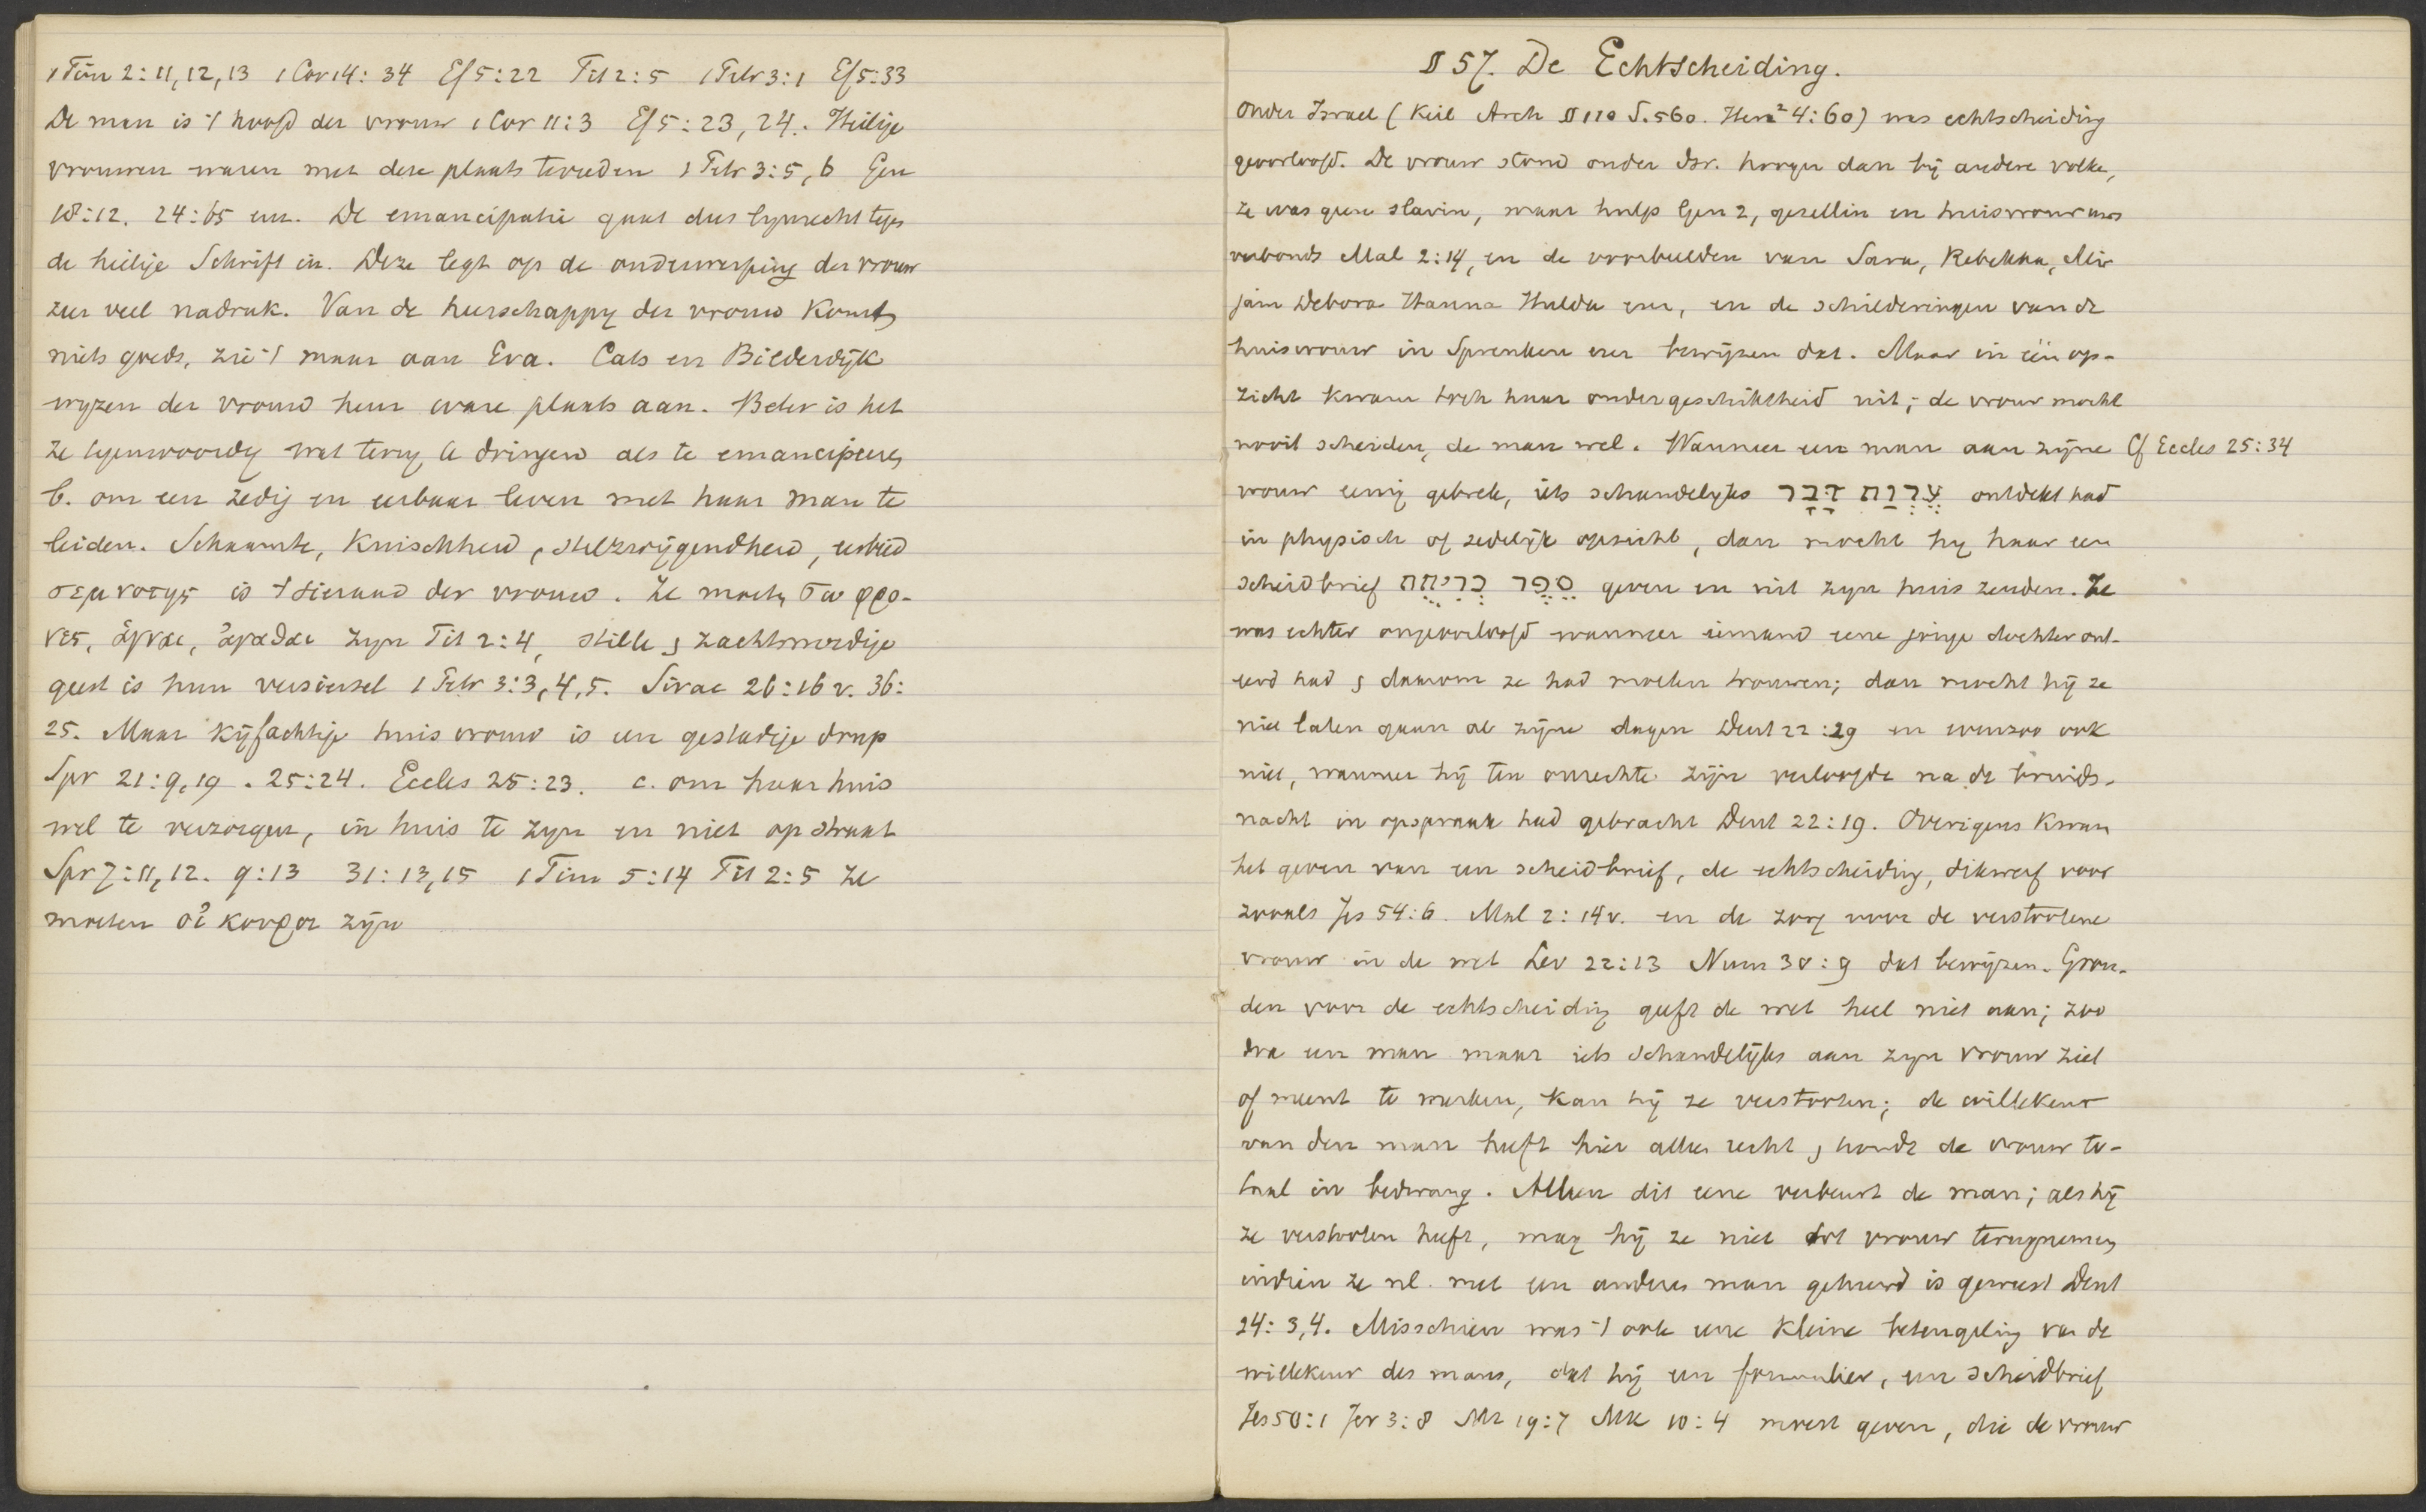 1 Tim 2:11,12,13 1 Cor 14:34 Ef 5:22 Tit 2:5 1 Petr 3:1 Ef 5:33
De man is 't hoofd der vrouw 1 Cor 11:3 Ef 5:23,24. Heilige
vrouwen waren met deze plaats tevreden 1 Petr 3:5,6 Gen
18:12. 24:65 enz. De emancipatie gaat dus lijnrecht tegen
de heilige Schrift in. Deze legt op de onderwerping der vrouw
zeer veel nadruk. Van de heerschappy der vrouw komt
niets goeds, zie 't maar aan Eva. Cats en Bilderdijk
wyzen der vrouw hun ware plaats aan. Beter is het
ze tegenwoordig wat terug te dringen als te emanciperen
b. om een zedig en eerbaar leven met haar man te
leiden. Schaamte, Kuischheid, stilzwijgendheid, eerbied
σεμνοτης is 't sieraad der vrouw. Ze moeten σωφρο-
νες, ἁγναι, ἀγαθαι zyn Tit 2:4, stille & zachtmoedige
geest is hun versiersel 1 Petr 3:3,4,5. Sirac 26:16 v. 36:
25. Maar kijfachtige huisvrouw is een gestadige drup
Spr 21:9,19. 25:24. Eccles 25:23. c. om haar huis
wel te verzorgen, in huis te zyn en niet op straat
Spr 7:11,12. 9:13 31:13,15 1 Tim 5:14 Tit 2:5 Ze
moeten οἰκουροι zijn
§ 57. De Echtscheiding.
Onder Israel (Keil Arch § 110 S. 560. Herz² 4:60) was echtscheiding
geoorloofd. De vrouw stond onder Isr. hooger dan bij andere volken,
ze was geen slavin, maar hulp Gen 2, gezellin en huisvrouw uws
verbonds Mal 2:14, en de voorbeelden van Sara, Rebekka, Mir
jam Debora Hanna Hulda enz, en de schilderingen van de
huisvrouw in Spreuken enz bewijzen dat. Maar in één op-
zicht kwam toch haar ondergeschiktheid uit; de vrouw mocht
nooit scheiden, de man wel. Wanneer een man aan zijne Cf Eccles 25:34
vrouw eenig gebrek, iets schandelyks עֶרְוַת דָּבָר ontdekt had
in physisch of zedelijk opzicht, dan mocht hy haar een
scheidbrief סֵפֶר כְּרִיתֻת geven en uit zyn huis zenden. Ze
was echter ongeoorloofd wanneer iemand eene jonge dochter ont-
eerd had & daarom ze had moeten trouwen; dan mocht hij ze
niet laten gaan al zijne dagen Deut 22:29 en evenzoo ook
niet, wanneer hij ten onrechte zijn verloofde na de bruids-
nacht in opspraak had gebracht Deut 22:19. Overigens kwam
het geven van een scheidbrief, de echtscheiding, dikwerf voor
zooals Jes 54:6. Mal 2:14v. en de zorg voor de verstootene
vrouw in de wet Lev 22:13 Num 30:9 dat bewijzen. Gron-
den voor de echtscheiding geeft de wet heel niet aan; zoo
dra een man maar iets schandelijks aan zyn vrouw ziet
of meent te merken, kan hij ze verstooten; de willekeur
van den man heeft hier alle recht & houdt de vrouw to-
taal in bedwang. Alleen dit eene verbeurt de man; als hij
ze verstooten heeft, mag hij ze niet tot vrouw terugnemen
indien ze nl. met een anderen man gehuwd is geweest Deut
24:3,4. Misschien was 't ook eene kleine beteugeling van de
willekeur des mans, dat hij een formulier, een scheidbrief
Jes 50:1 Jer 3:8 Mt 19:7 Mk 10:4 moest geven, die de vrouw